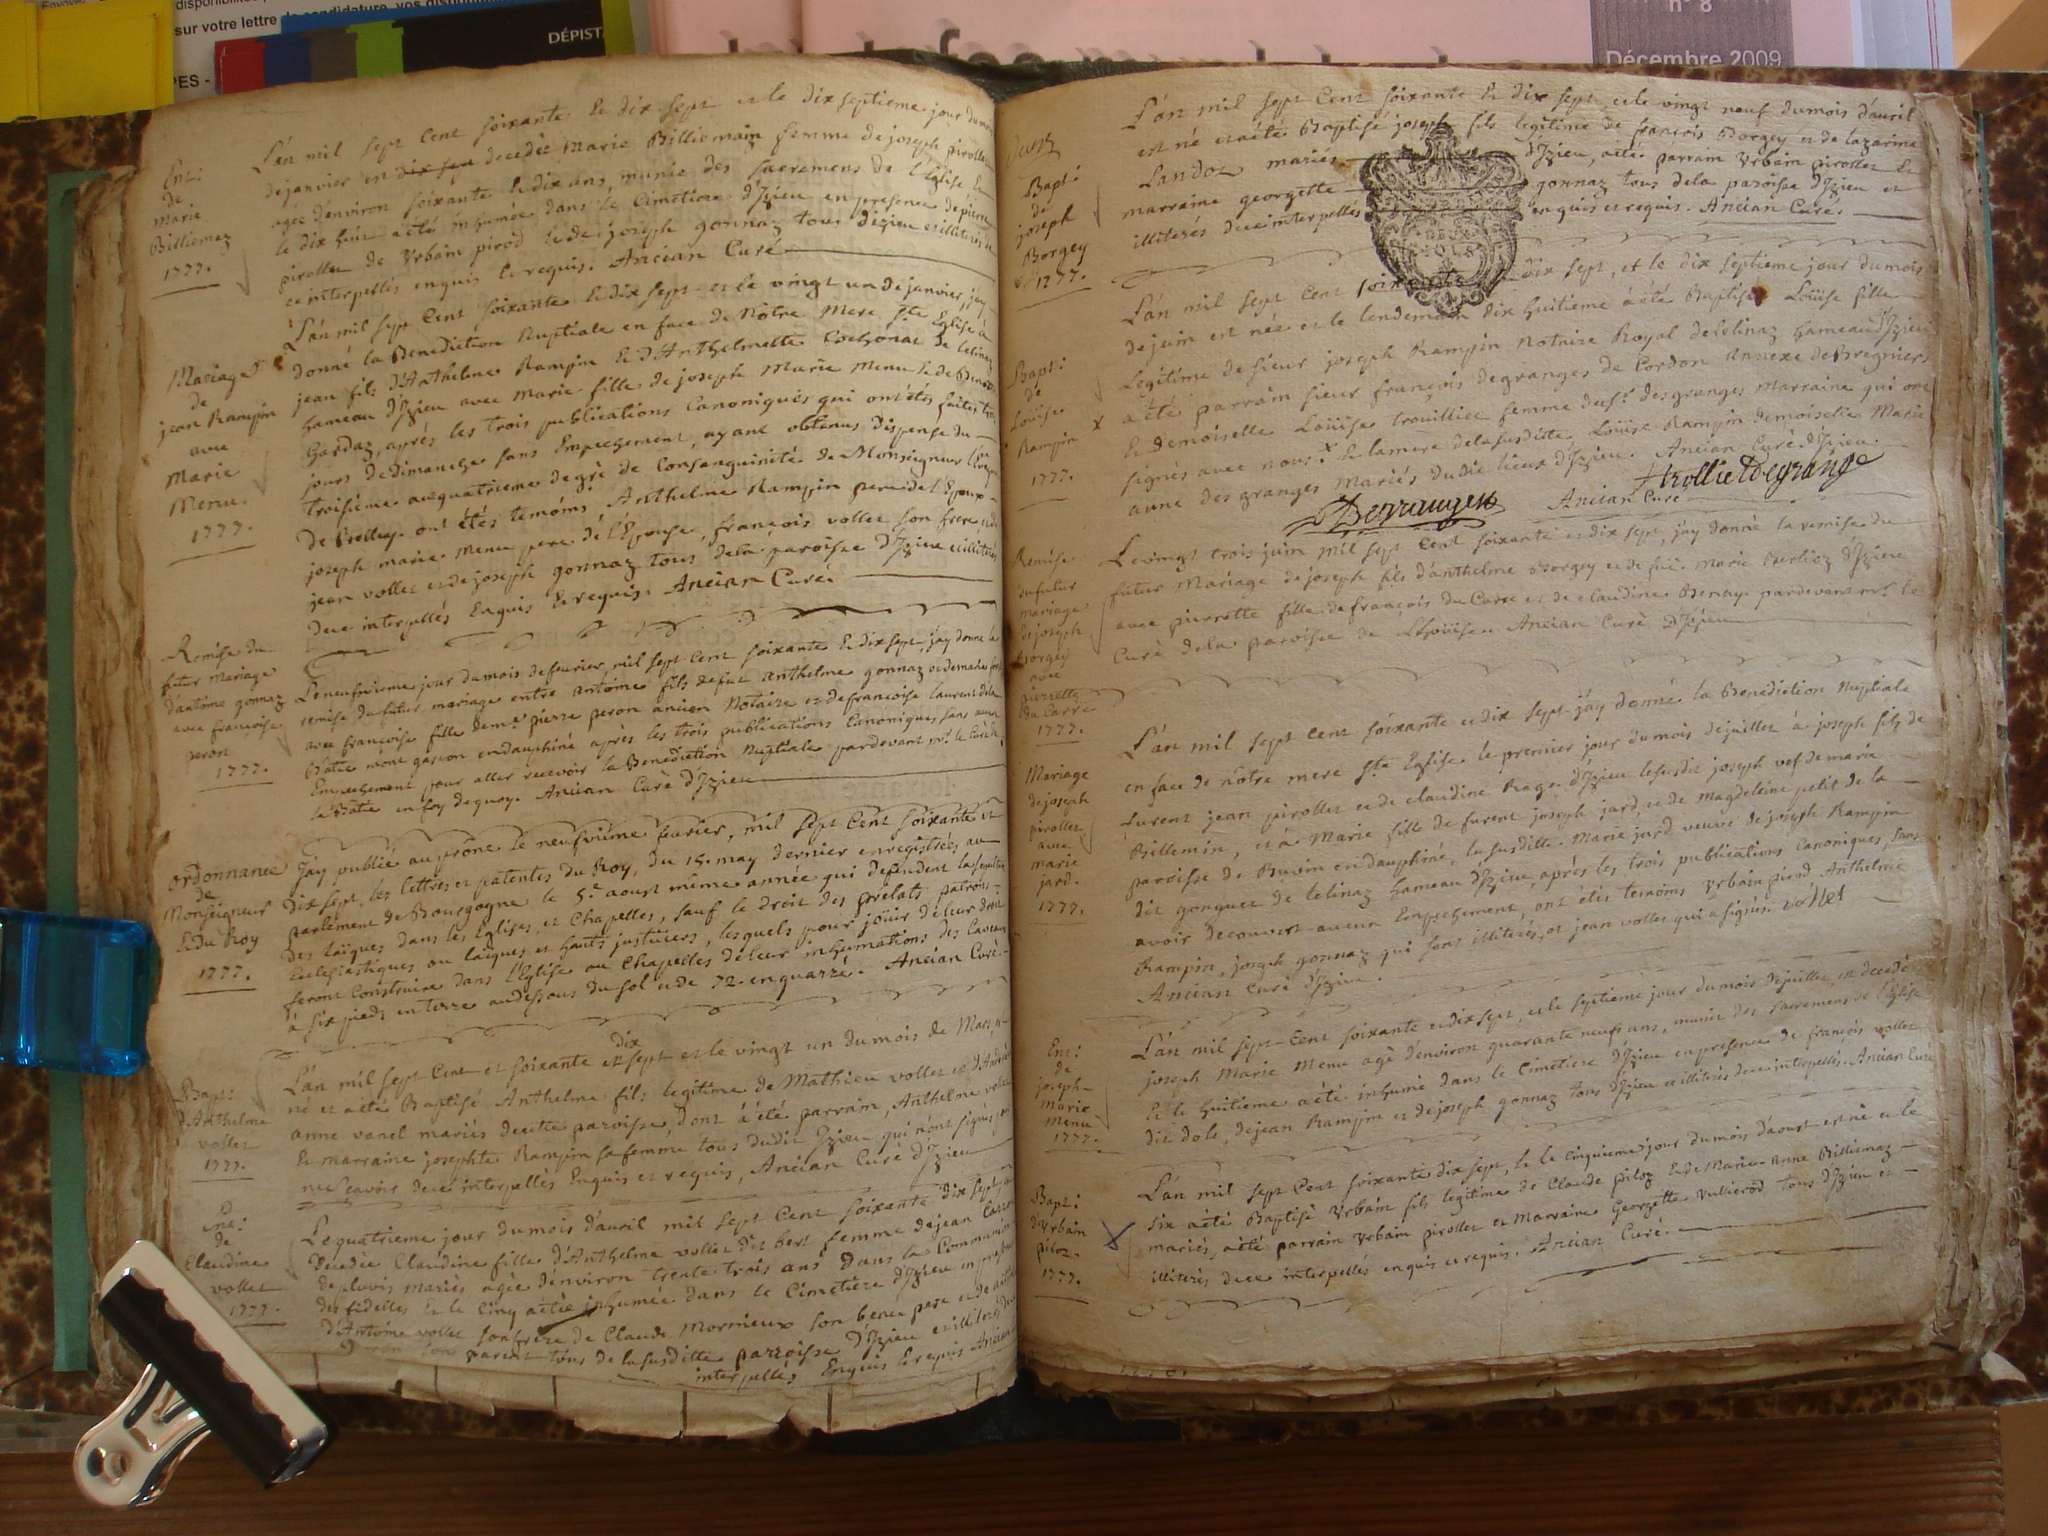 sur votre lettre de candidature, vos
DÉPIST
PES -
n° 8
Décembre 2009
Ent:
de
Marie
Billiemaz
1777.
L'an mil sept cent soixante et dix sept et le dix septieme jour du mois
de janvier est decedée Marie Billiemain femme de joseph pirollet
agée d'environ soixante et dix ans, munie des sacremens de l'Eglise et
le dix huit a été inhumée dans le Cimetiere d'Izieu en presence de pierre
pirollet de Urbain pirod et de joseph gonnaz tous d'izieu et illiterés
ce interpellés enquis et requis. Ancian Curé
Mariage
de
jean Rampin
avec
Marie
Menu.
1777.
L'an mil sept Cent soixante et dix sept et le vingt un de janvier, j'ay
donné la Benediction Nuptiale en face de Nôtre Mere Ste Eglise à
jean fils d'Anthelme Rampin et d'Anthelmette Cochonat de Lelinaz
hameau d'Izieu avec Marie fille de joseph Marie Menu et de
Gardaz, après les trois publications Canoniques qui ont étés faites
jours de dimanche sans Empechement, ayant obtenus dispense du
troisième au quatrieme degré de Consanguinité de Monseigneur
de Belley. ont étés temoins Anthelme Rampin pere de l'Epoux
joseph marie menu pere de l'Epouse, françois vollet son frere
jean vollet et de joseph gonnaz tous de la paroisse d'Izieu et illiterés
de ce interpellés Enquis et requis. Ancian Curé.
Remise du
futur mariage
d'antoine gonnaz
avec françoise
peron
1777.
Le neufvieme jour du mois de fevrier, mil sept Cent soixante et dix sept, j'ay donné la
remise du futur mariage entre antoine fils de fut anthelme gonnaz et de
avec françoise fille de me pierre peron ancien Notaire et de francoise laurent de la
Bâtie mont gascon en dauphiné après les trois publications Canoniques, sans aucun
Empechement pour aller recevoir la Benediction Nuptiale pardevant mr. le Curé de
la Bâtie en foy de quoy. Ancian Curé d'Izieu
Ordonnance
de
Monseigneur
et du Roy
1777.
J'ay publié au prône le neufvieme fevrier, mil sept Cent soixante et
dix sept, les lettres et patentes du Roy, du 15. may dernier enregistrées au
parlement de Bourgogne le 5e aoust même année qui defendent la sepulture
des laïques dans les Eglises, et Chapelles, sauf le droit des prelats patrons
Ecclesiastiques ou laïques et hauts justiciers, lesquels pour joüir de leur droit
feront Construire dans l'Eglise ou Chapelles de leur inhumations des caveaux
à six pieds en terre audessous du sol et de 72. en quarré. Ancian Curé.
Bap:
d'Anthelme
vollet
1777.
dix
L'an mil sept Cent et soixante et sept et le vingt un du mois de Mars,
né et a été Baptisé Anthelme fils legitime de Mathieu vollet et d'
anne vanel mariés de cette paroisse, dont a été parrain, Anthelme vollet
et marraine josephte Rampin sa femme tous dudit Izieu qui n'ont signés,
ne sçavoir de ce interpellés Enquis et requis, Ancian Curé d'Izieu
Ent:
de
Claudine
vollet
1777.
Le quatrieme jour du mois d'avril mil sept Cent soixante dix sept
decedée Claudine fille d'Anthelme vollet dit bert femme de jean
depluvis mariés agée d'environ trente trois ans dans la Communion
des fideles et le Cinq a été inhumée dans le Cimetiere d'Izieu in
d'Antoine vollet son frere de Claude Mornieux son beau pere et de
parent tous de la susditte parroisse d'Izieu et illiterés de
interpellés Enquis et requis Ancian
Bapt:
de
joseph
Borgey
1777.
L'an mil sept Cent soixante et dix sept, et le vingt neuf du mois d'avril
est né et a été Baptisé joseph fils legitime de françois Borgey et de lazarine
Landoz mariés d'Izieu, a été parrain Urbain pirollet et
marraine georgette gonnaz tous de la paroisse d'Izieu et
illiterés de ce interpellés enquis et requis. Ancian Curé.
Bapt:
de
Loüise
Rampin
1777.
L'an mil sept Cent soixante dix sept, et le dix septieme jour du mois
de juin est née et le lendemain dix huitieme a été Baptisée Loüise fille
Legitime de sieur joseph Rampin Notaire Royal de Lelinaz hameau d'Izieu
a été parrain sieur françois degranges de Cordon annexe de Bregnier
et demoiselle Loüise trouilliet femme dud sr. desgranges Marraine qui ont
signés avec nous. x et la mere de la susditte Loüise Rampin demoiselle Marie
anne des granges mariés dudit lieu d'Izieu. Ancian Curé d'Izieu.
Degranges Ancian Curé trollie Degrange
Remise
du futur
mariage
de joseph
Borgey
avec
pierrette
du Carre
1777.
Le vingt trois juin mil sept Cent soixante et dix sept, j'ay donné la remise du
futur Mariage de joseph fils d'anthelme Borgey et de fuë Marie Berlioz d'Izieu
avec pierrette fille de françois du Carre et de claudine Benay. pardevant mr. le
Curé de la paroisse de Lhüis. Ancian Curé d'Izieu
Mariage
de joseph
pirollet
avec
marie
jard.
1777.
L'an mil sept cent soixante et dix sept j'ay donné la Benediction Nuptiale
en face de nôtre mere Ste Eglise le premier jour du mois de juillet à joseph fils de
furent jean pirollet et de claudine Reage d'Izieu lesusdit joseph vef de marie
Billemin, et à Marie fille de furent joseph jard, et de Magdeleine petit de la
paroisse de Buvin en dauphiné, la susditte Marie jard veuve de joseph Rampin
dit gonguet de lelinaz hameau d'Izieu, après les trois publications Canoniques, sans
avoir decouvert aucun Empechement, ont étés temoins Urbain pirod Anthelme
Rampin, joseph gonnaz qui sont illiterés, et jean vollet qui a signés. vollet
Ancian Curé d'Izieu.
Ent:
de
joseph-
marie
menu
1777.
L'an mil sept Cent soixante et dix sept, et le septieme jour du mois de juillet, est decedé
joseph Marie Menu agé d'environ quarante neufs ans, munit des sacremens de l'Eglise
et le huitieme a été inhumé dans le Cimetiere d'Izieu en presence de françois vollet
dit dole, de jean Rampin et de joseph gonnaz tous d'Izieu et illiterés de ce interpellés. Ancian Curé
Bapt:
d'Urbain
piloz.
1777.
L'an mil sept Cent soixante dix sept, et le Cinquieme jour du mois d'aoust est né et le
six a été Baptisé Urbain fils legitime de Claude piloz et de Marie-Anne Billiemaz
mariés, a été parrain Urbain pirollet et Marraine Georgette Vullierod tous d'Izieu et
illiterés de ce interpellés enquis et requis. Ancian Curé.